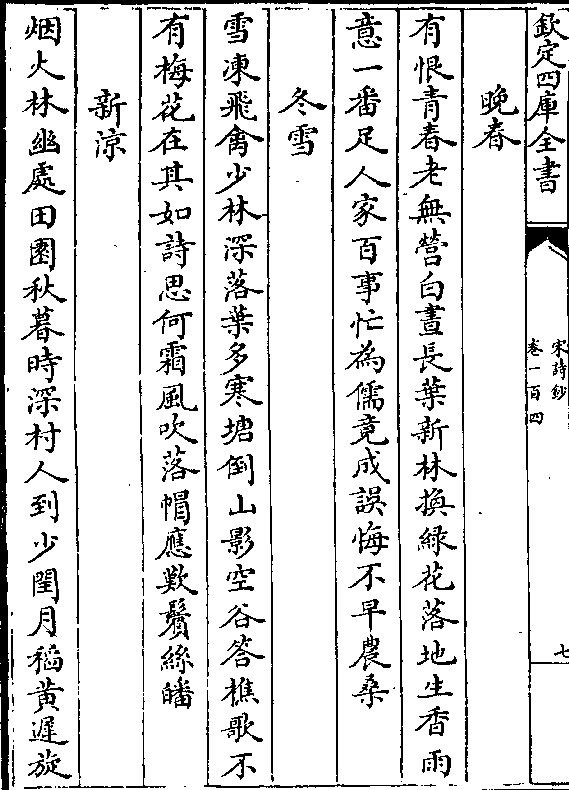 欽定四庫全書
宋詩鈔
卷一百四
七
晚春
有恨青春老無營白晝長葉新林換緑花落地生香雨
意一番足人家百事忙為儒竟成誤悔不早農桑
冬雪
雪凍飛禽少林深落葉多寒塘倒山影空谷答樵歌不
有梅花在其如詩思何霜風吹落帽應歎鬢絲皤
新涼
烟火林幽處田園秋暮時深村人到少閏月稻黄遲旋